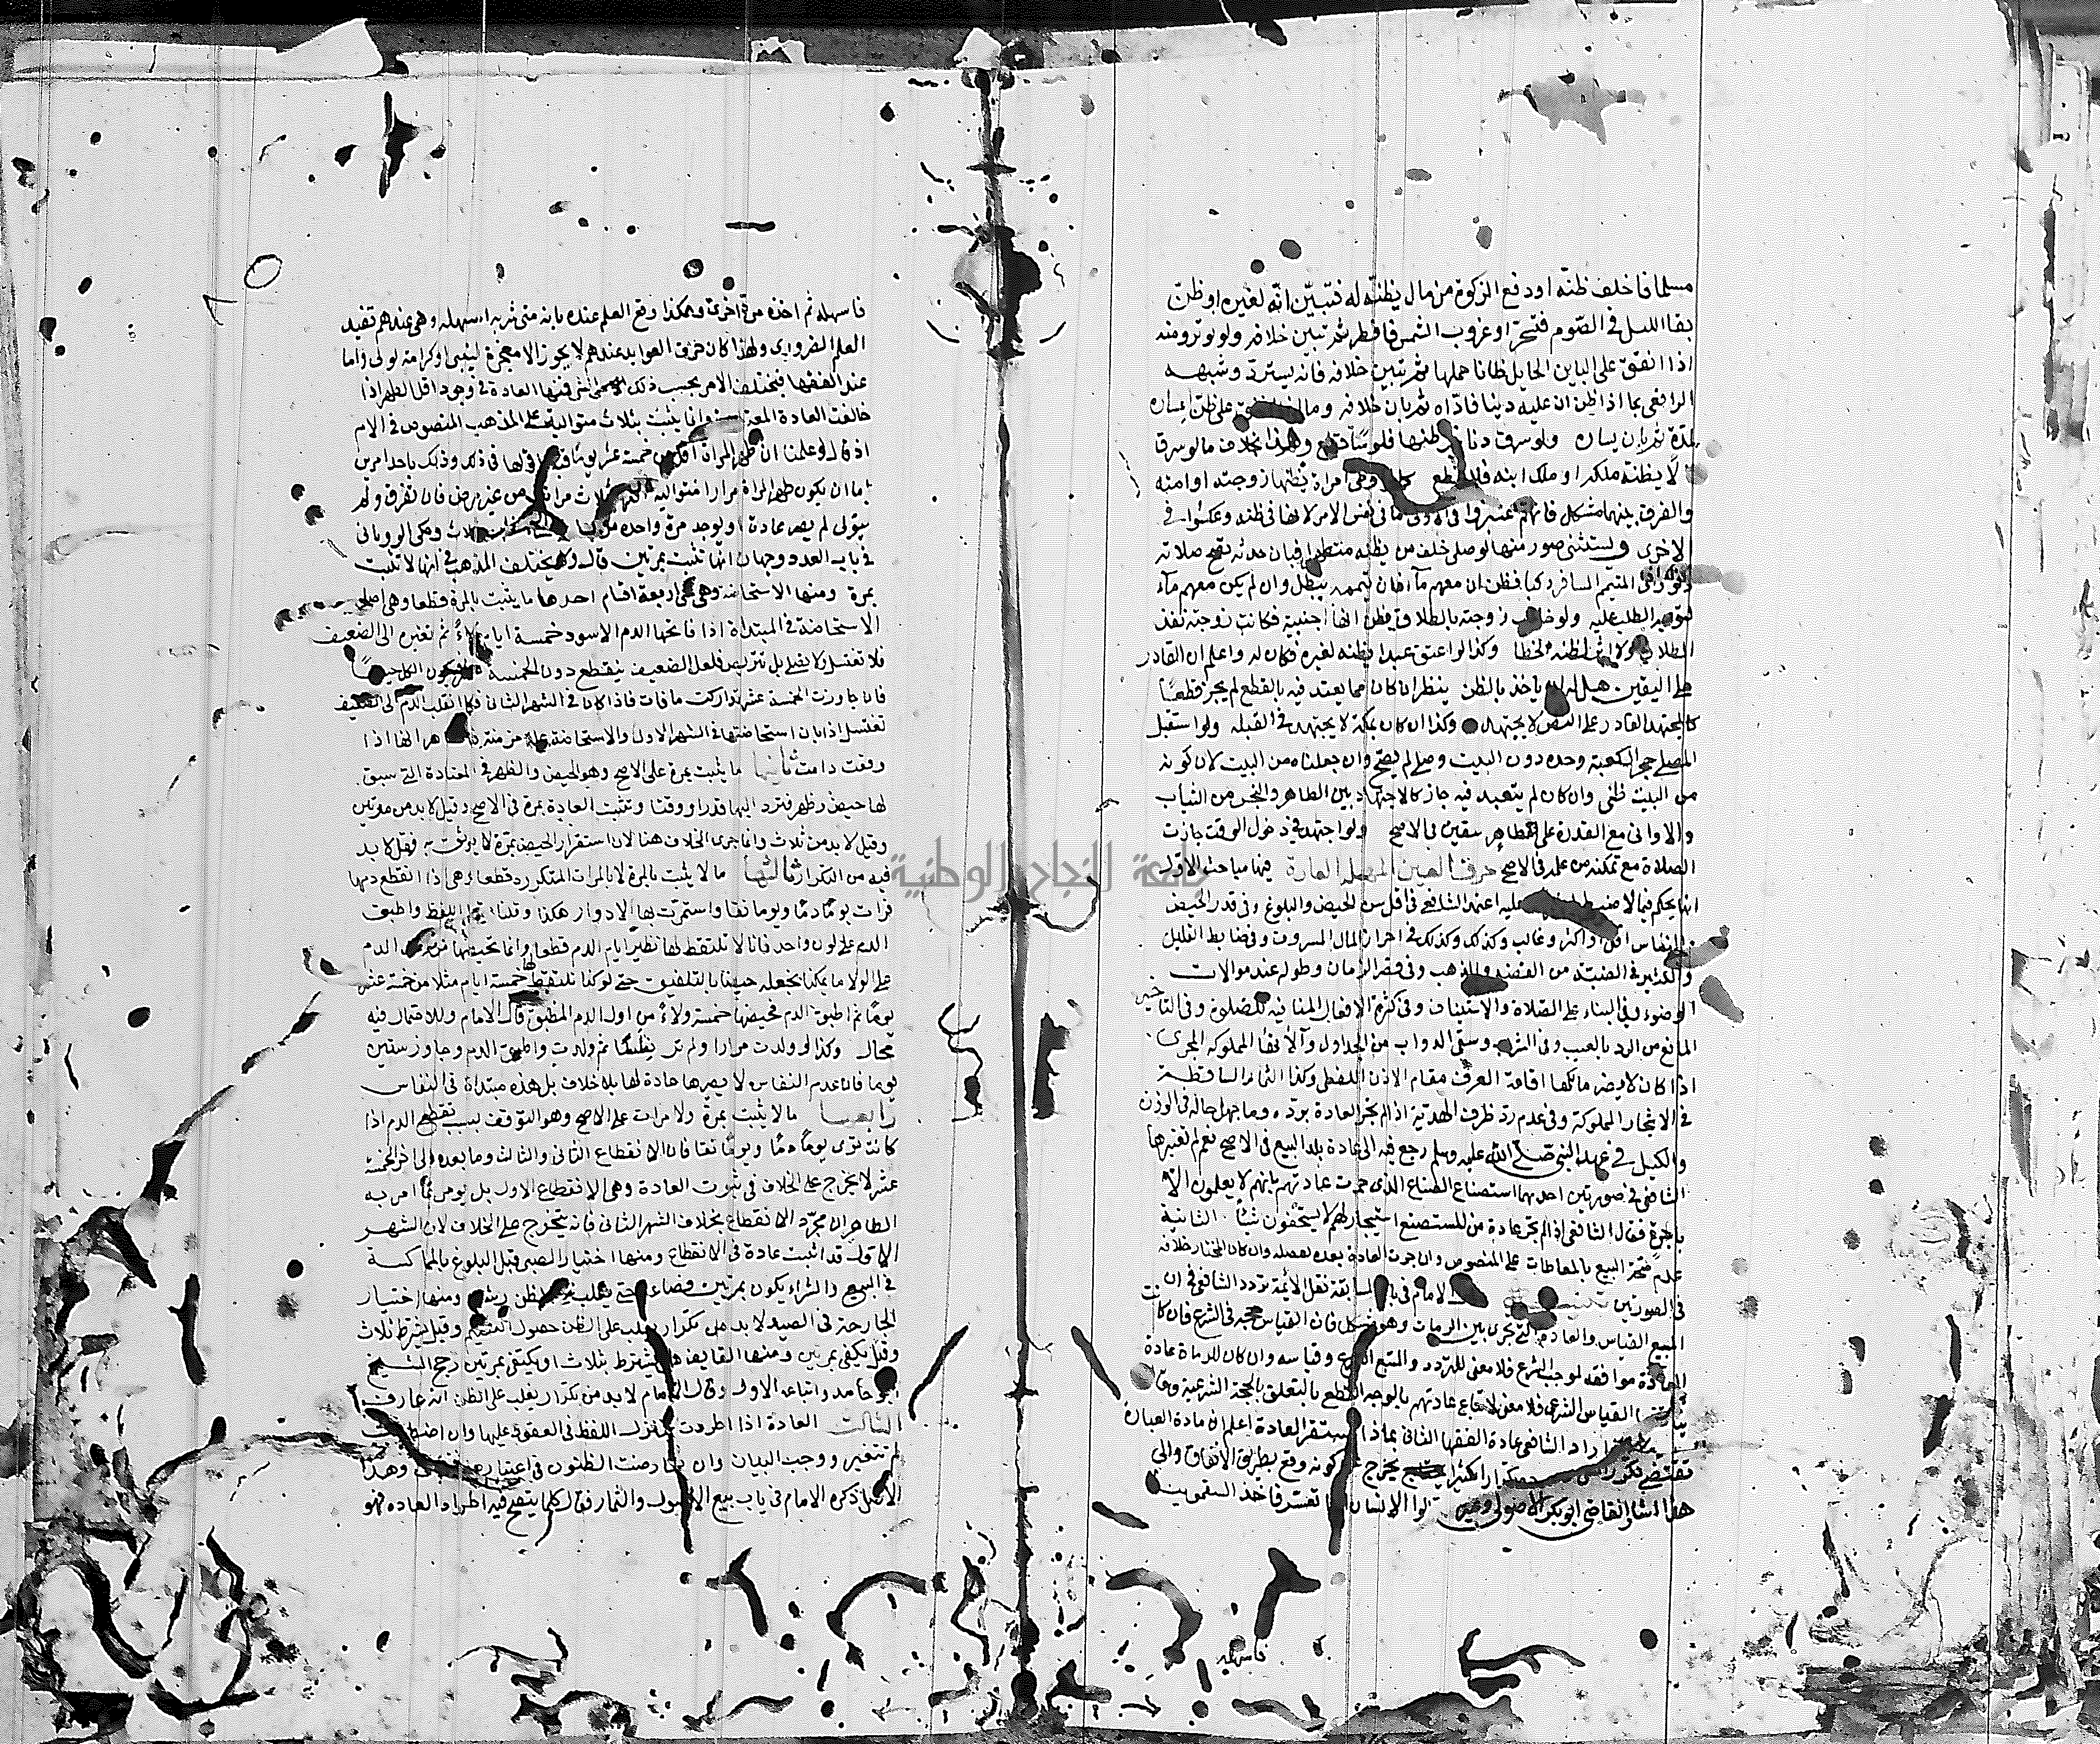 مسلما فاخلف ظنه او دفع الزكوة من مال يظنه له فتبين انه لغيره او ظن
بقا الليل في الصوم فتسحر او غروب الشمس فافطر ثم تبين خلافه ولو تزوجته
اذا انفق على الباين الحايل ظانا حملها ثم تبين خلافه فانه يسترد وشبهه
الرافعي بما اذا ظن ان عليه دينا فاداه ثم بان خلافه وما على ظن اعساره
ثم بان يساره ولو سرق دنانير ظنها فلوسا قطع وهذا بخلاف ما لو سرق
لا يظنه ملكه او ملك ابنه فلا قطع وطى امراة يظنها زوجته او امته
والفرق بينهما مشكل فانهم اعتبروا في الاولى ما في نفس الامر لا ما في ظنه وعكسوا في
الاخرى ويستثنى صور منها لو صلى خلف من يظنه متطهرا فبان حدثه تصح صلاته
ولو راى المتيمم المسافر ركبا فظن ان معهم ماء فان تيممه يبطل وان لم يكن معهم ماء
لتوجه الطلب عليه ولو خاطب زوجته بالطلاق يظن انها اجنبية فكانت زوجته نفذ
الطلاق ولا اثر لظنه الخطا وكذا لو اعتق عبدا يظنه لغيره فكان له واعلم ان القادر
على اليقين هل له ان ياخذ بالظن ينظر ان كان مما يعتبد فيه بالقطع لم يجز قطعا
كالمجتهد القادر على النص لا يجتهد وكذا ان كان بمكة لا يجتهد في القبله ولو استقبل
المصلي حجر الكعبة وحده دون البيت وصلى لم يصح وان جعلناه من البيت لان كونه
من البيت ظني وان كان لم يتعبد فيه جاز كالاجتهاد بين الطاهر والنجس من الثياب
والاواني مع القدرة على طاهر بيقين في الاصح ولو اجتهد في دخول الوقت جازت
الصلاة مع تمكنه من علمه في الاصح حرف العين المهملة العادة فيها مباحث الاول
انما يحكم فيما لا ضبط له عليه اعتمد الشافعي في اقل سن الحيض والبلوغ وفي قدر الحيض
والنفاس اقل واكثر وغالب وكذلك وكذلك في احراز المال المسروق وفي ضابط القليل
والكثير في الضبة من الفضة والذهب وفي قصر الزمان وطوله عند موالات
الوضوء وفي البناء على الصلاة والاستيناف وفي كثرة الافعال المنافيه للصلوة وفي التاخير
المانع من الرد بالعيب وفي الشرب وسقي الدواب من الجداول والانهار المملوكة المجرى
اذا كان لا يضر مالكها اقامة العرف مقام الاذن اللفظي وكذا الثمار الساقطة
في الاشجار المملوكة وفي عدم رد ظرف الهدية اذا لم تجر العادة برده وما جهل حاله في الوزن
والكيل في عهد النبي صلى الله عليه وسلم رجع فيه الى عادة بلد البيع في الاصح نعم لم نغيرها
الشافعي في صورتين احديهما استصناع الصناع الذي جرت عادتهم بانهم لا يعلمون الا
باجرة فقال الشافعي اذا لم تجر عادة من المستصنع استيجارهم لا يستحقون شيئا الثانية
عدم صحة البيع بالمعاطات على المنصوص وان جرت العادة بعده بفصله وان كان المختار خلافه
في الصورتين الامام في باب المسابقة نقل الائمة تردد الشافعي في ان
المبيع القياس والعادة التي تجري بين الرماة وهو مشكل فان القياس حجه في الشرع فان كانت
العادة موافقه لموجب الشرع فلا معنى للتردد والمتبع الشرع وقياسه وان كان للرماة عادة
القياس الشرعي فلا معنى لاتباع عادتهم بالوجه القطع بالتعلق بالحجة الشرعية
اراد الشافعي عادة الفقها الثاني بماذا تستقر العادة اعلم ان مادة العبارة
تقتضي تكرر تكرارا كثيرا يخرج عن كونه وقع بطريق الاتفاق والى
هذا اشار القاضي ابو بكر الاصولي وغيره قالوا الانسان فاخذ السقمونيا
فاسهله
فاسهله ثم اخذه مرة اخرى وهكذا وقع العلم عنده بانه متى شربه اسهله وهي عندهم تفيد
العلم الضروري ولهذا كان خرق العوايد عندهم لا يجوز الا معجزة لنبي او كرامة لولي واما
عند الفقها فيختلف الامر بحسب ذلك فمنها العادة في وجود اقل الطهر اذا
خالفت العادة المعتبرة وانما يثبت بثلاث متوالية على المذهب المنصوص في الام
اذ قال لو علمنا ان طهر المراة اقل من خمسة عشر يوما قبلنا قولها في ذلك وذلك باحد امرين
اما ان يكون طهر المراة مرارا متوالية اقلها ثلاث مرات من غير مرض فان تفرق ولم
يتوالى لم يصر عادة او يوجد مرة واحدة ثلاث وحكى الروياني
في باب العدد وجهان انها تثبت بمرتين قال ولا يختلف المذهب في انها لا تثبت
بمرة ومنها الاستحاضة وهي على اربعة اقسام احدها ما يثبت بالمرة قطعا وهي اصل
الاستحاضة في المبتداة اذا فاتحها الدم الاسود خمسة ايام ولاء ثم تغيره الى الضعيف
فلا تغتسل ولا يصلي بل تتربص فلعل الضعيف ينقطع دون الخمسة عشر فيكون الكل حيضا
فان جاوزت الخمسة عشر تداركت ما فات فاذا كان في الشهر الثاني فكما انقلب الدم الى الضعيف
تغتسل اذا بان استحاضتها في الشهر الاول والاستحاضة علة مزمنة فالظاهر انها اذا
وقعت دامت ثانيها ما يثبت بمرة على الاصح وهو الحيض والطهر في المعتادة التي سبق
لها حيض وطهر فترد اليها قدرا ووقتا وتثبت العادة بمرة في الاصح وقيل لا بد من مرتين
وقيل لا بد من ثلاث وانما جرى الخلاف هنا لان استقرار الحيض بمرة لا يوثق به فقيل لا بد
فيه من التكرار ثالثها ما لا يثبت بالمرة لا بالمرات المتكررة قطعا وهي اذا انقطع دمها
فرات يوما دما ويوما نقا واستمرت بها الادوار هكذا وقلنا باللقط واطبق
الدم على لون واحد فانا لا نلتقط لها نظير ايام الدم قطعا وانما نحيضها الدم
على الولا ما يمكن نجعله حيضا بالتلفيق حتى لو كنا نلتقط لها خمسة ايام مثلا من خمسة عشر
يوما ثم اطبق الدم نحيضها خمسة ولاء من اول الدم المطبق قال الامام وللاحتمال فيه
مجال وكذا لو ولدت مرارا ولم تر نفاسا ثم ولدت واطبق الدم وجاوز ستين
يوما فان عدم النفاس لا يصيرها عادة لها بلا خلاف بل هذه مبتداة في النفاس
رابعها ما لا يثبت بمرة ولا مرات على الاصح وهو التوقف بسبب تقطع الدم اذا
كانت ترى يوما دما ويوما نقا فان الانقطاع الثاني والثالث وما بعده الى اخر الخمسة
عشر لا يخرج على الخلاف في ثبوت العادة وهي الانقطاع الاول بل يومر بما امر به
الطاهران مجرد الانقطاع بخلاف الشهر الثاني فانه يتخرج على الخلاف لان الشهر
الاول قد اثبت عادة في الانقطاع ومنها اختبار الصبي قبل البلوغ بالمماكسة
في البيع والشراء يكون بمرتين فصاعدا حتى يغلب على الظن رشده ومنها اختيار
الجارحة في الصيد لا بد من تكرار يغلب على الظن حصول التعليم وقيل يشترط ثلاث
وقيل يكفي بمرتين ومنها القايف هل يشترط بثلاث او يكتفى بمرتين رجح الشيخ
ابو حامد واتباعه الاول وقال الامام لا بد من تكرار يغلب على الظن انه عارف
الثالث العادة اذا اطردت ينزل اللفظ في العقود عليها وان اضطربت
لم تتغير ووجب البيان وان تعارضت الظنون في اعتبارها وهذا
الاصل ذكره الامام في باب بيع الاصول والثمار فقال كلما يتضح فيه اطراد العاده فهو
جامعة النجاح الوطنية